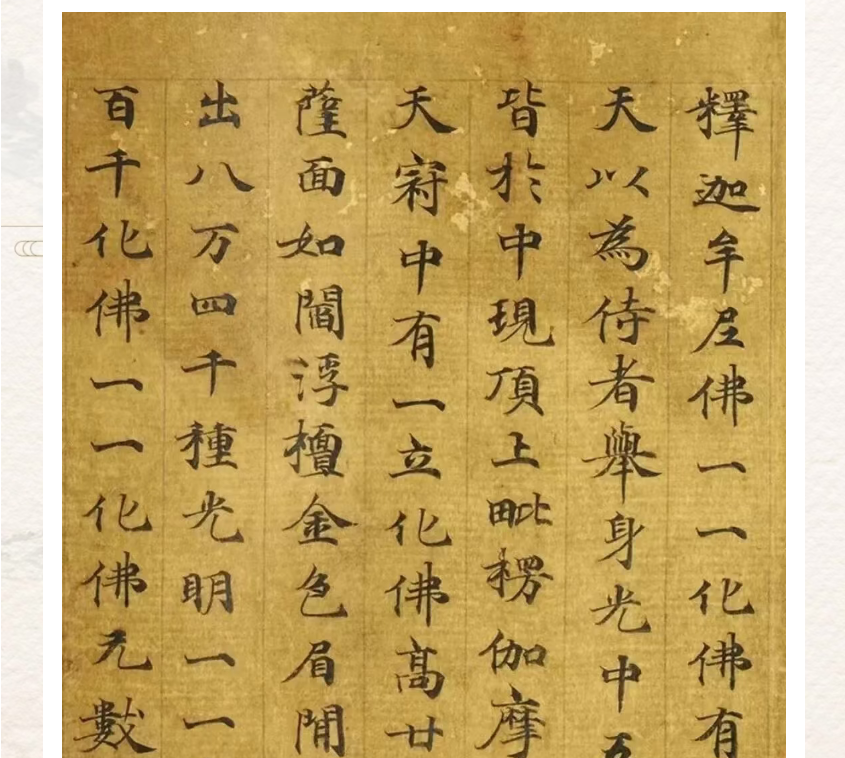 釋迦牟尼佛一一化佛有
天以為侍者舉身光中五
皆於中現頂上毗楞伽摩
天冠中有一立化佛高廿
薩面如閻浮檀金色眉間
出八万四千種光明一一
百千化佛一一化佛无數